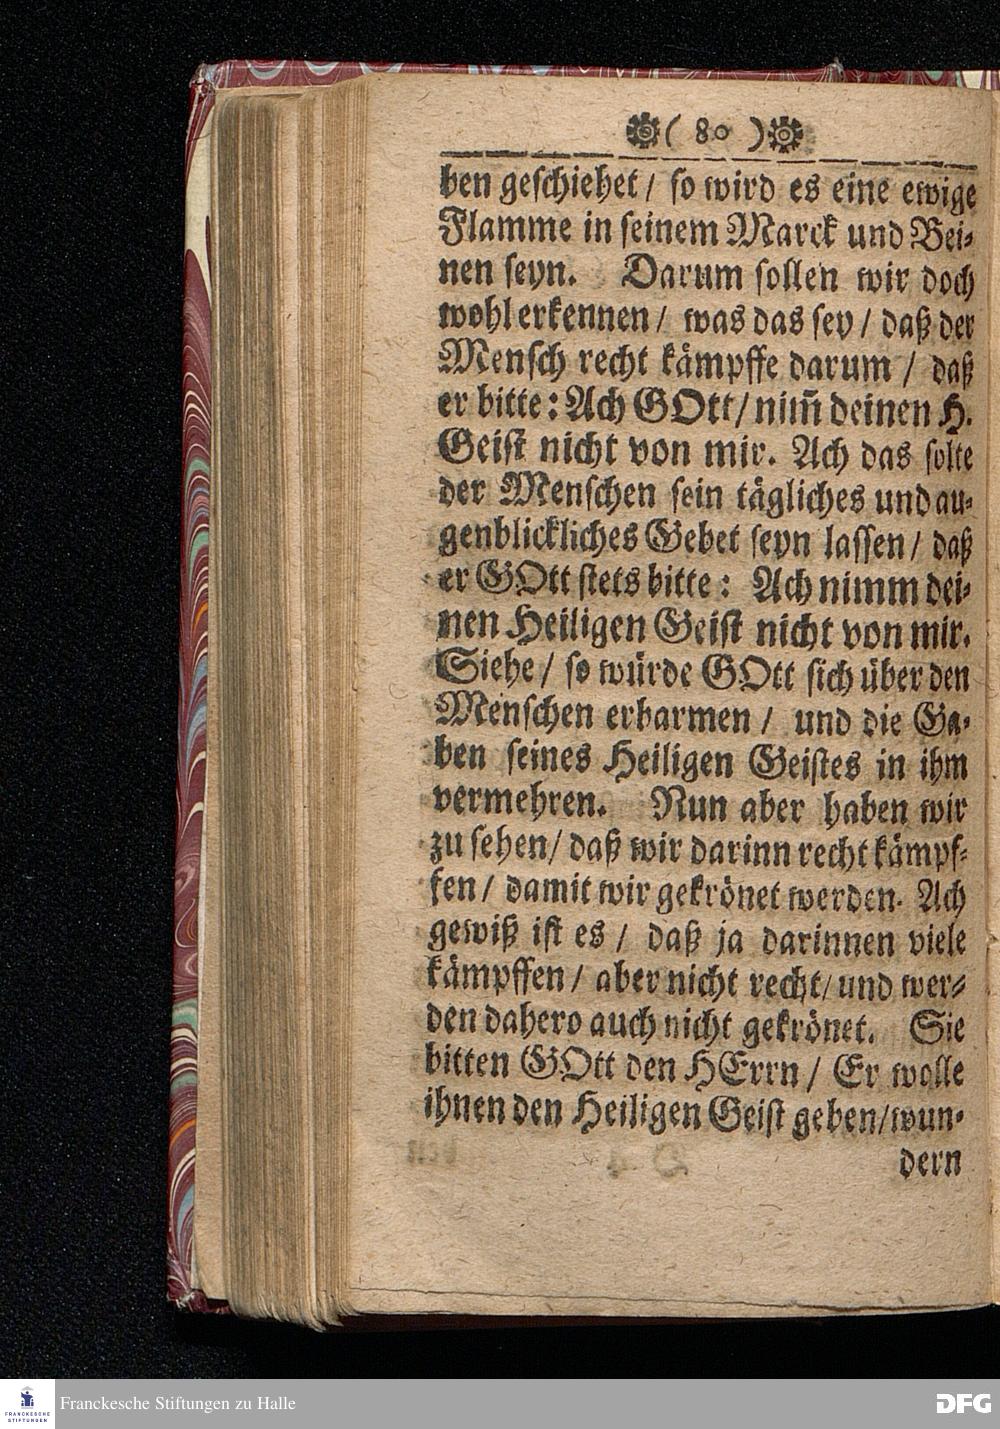 ( 80 )
ben geschiehet / so wird es eine ewige
Flamme in seinem Marck und Bei-
nen seyn. Darum sollen wir doch
wohl erkennen / was das sey / daß der
Mensch recht kämpffe darum / daß
er bitte: Ach GOtt / nim̃ deinen H.
Geist nicht von mir. Ach das solte
der Menschen sein tägliches und au-
genblickliches Gebet seyn lassen / daß
er GOtt stets bitte: Ach nimm dei-
nen Heiligen Geist nicht von mir.
Siehe / so würde GOtt sich über den
Menschen erbarmen / und die Ga-
ben seines Heiligen Geistes in ihm
vermehren. Nun aber haben wir
zu sehen / daß wir darinn recht kämpf-
fen / damit wir gekrönet werden. Ach
gewiß ist es / daß ja darinnen viele
kämpffen / aber nicht recht / und wer-
den dahero auch nicht gekrönet. Sie
bitten GOtt den HErrn / Er wolle
ihnen den Heiligen Geist geben / wun-
dern
FRANCKESCHE
STIFTUNGEN
Franckesche Stiftungen zu Halle
DFG